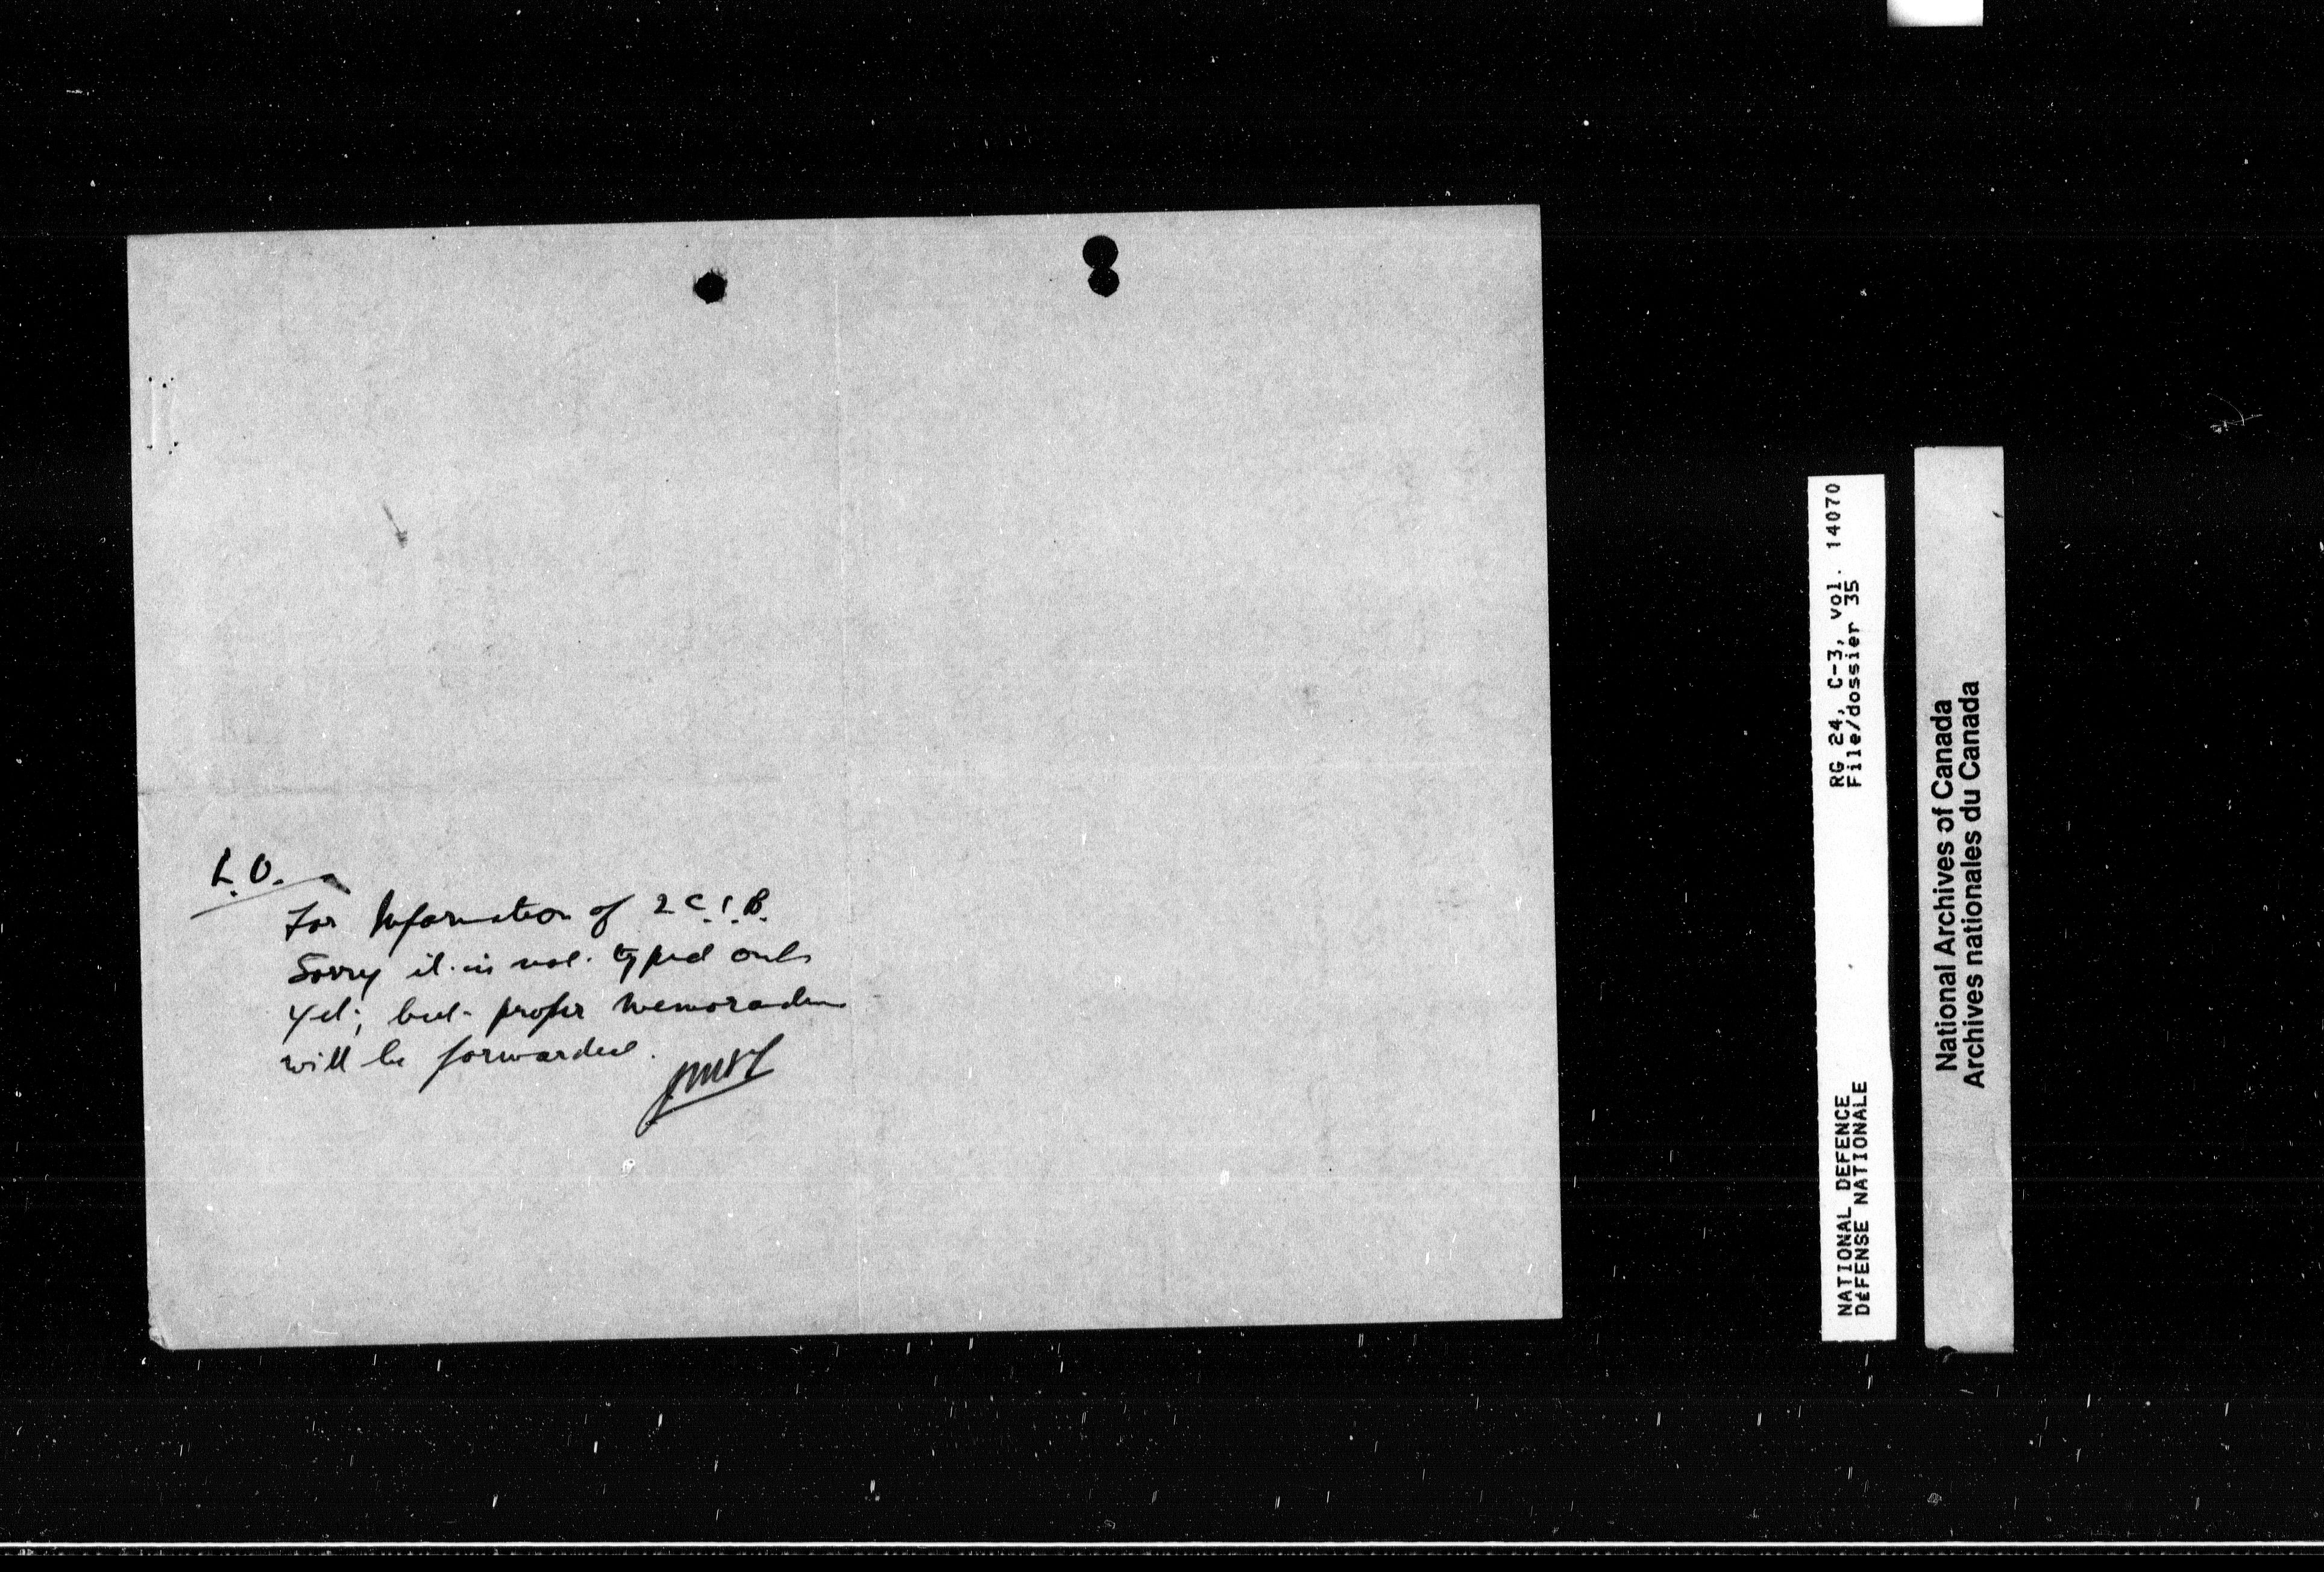 L.O.
For Information of 2 C.I.B.
Sorry it is not typed out
yet; but proper memoradum
will be forwarded.
RG 24, C-3, vol. 14070
File/dossier 35
NATIONAL DEFENCE
DÉFENSE NATIONALE
National Archives of Canada
Archives nationales du Canada